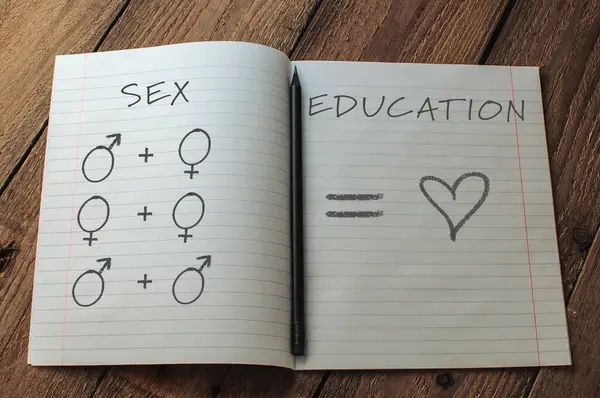 SEX EDUCATION
♂ + ♀
♀ + ♀ =
♂ + ♂